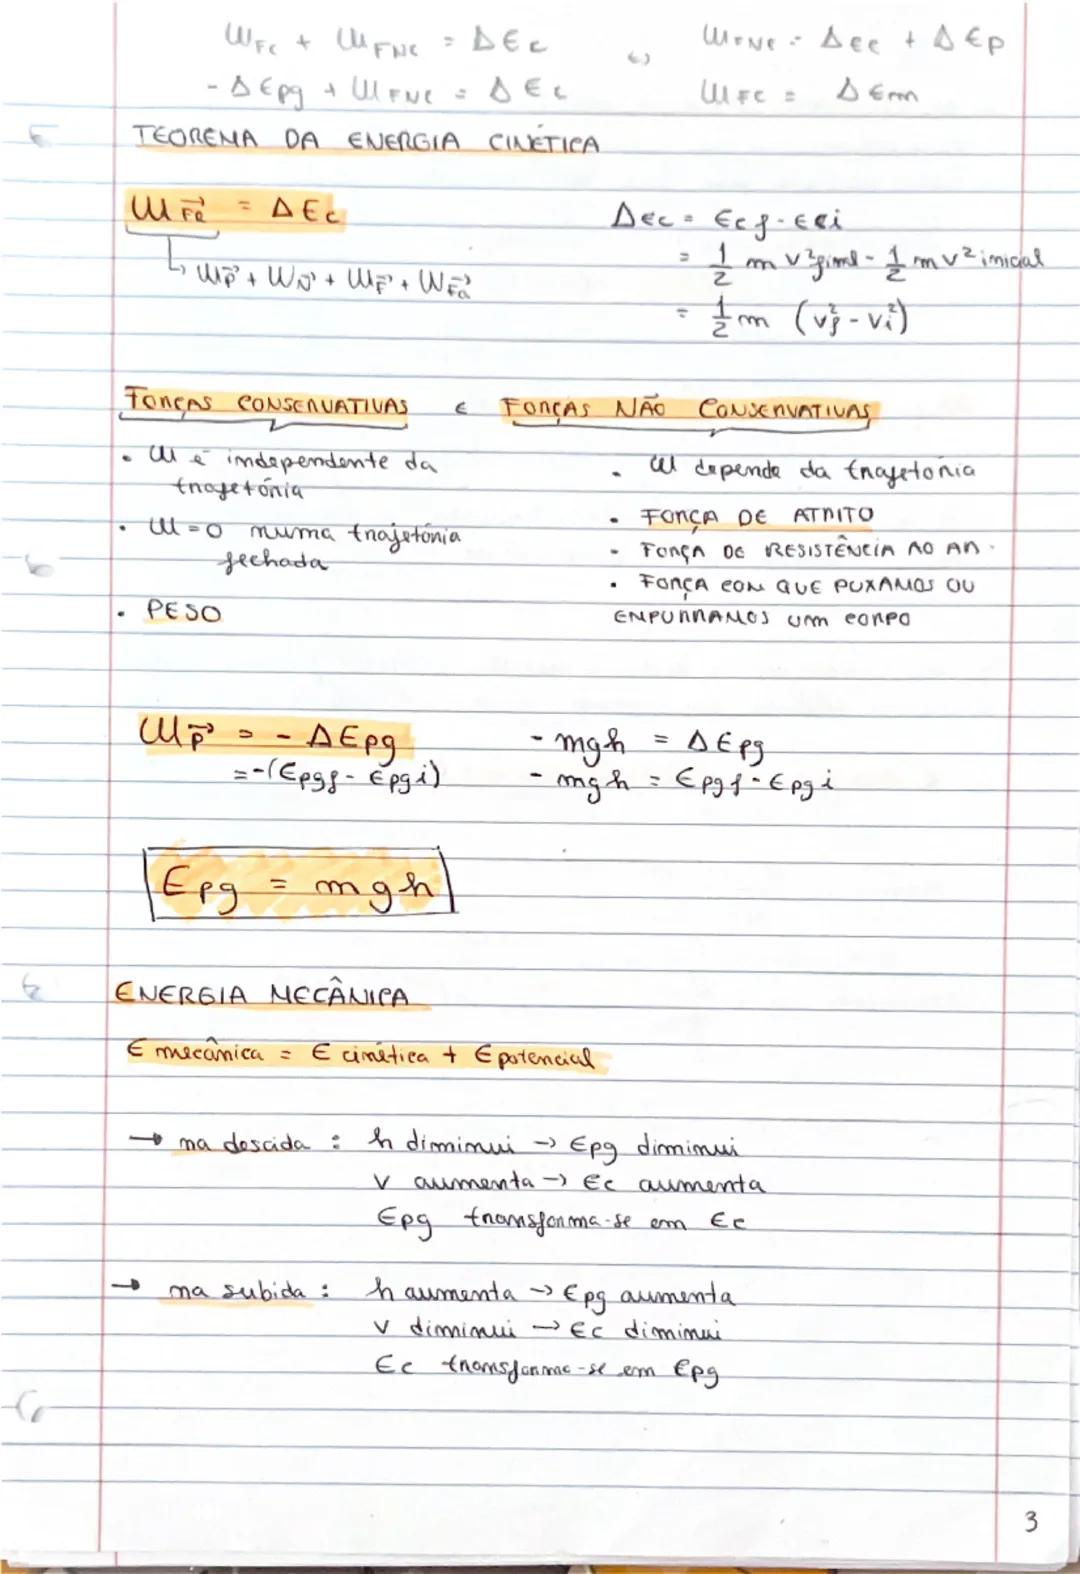 W Fc + W FNC = ΔEc ↔ W FNC = ΔEc + ΔEp
- ΔEpg + W FNC = ΔEc W FC = ΔEm
TEOREMA DA ENERGIA CINÉTICA
W F⃗R = ΔEc
↳ W P⃗ + W N⃗ + W F⃗ + W F⃗a
ΔEc = Ec f - Ec i
= 1/2 m v² final - 1/2 m v² inicial
= 1/2 m (v²f - v²i)
FORÇAS CONSERVATIVAS E FORÇAS NÃO CONSERVATIVAS
• W é independente da
trajetória
• W = 0 numa trajetória
fechada
• PESO
• W depende da trajetória
• FORÇA DE ATRITO
• FORÇA DE RESISTÊNCIA AO AR.
• FORÇA COM QUE PUXAMOS OU
EMPURRAMOS um CORPO
W P⃗ = - ΔEpg
= -(Epgf - Epgi)
- mgh = ΔEpg
- mgh = Epgf - Epgi
Epg = mgh
ENERGIA MECÂNICA
E mecânica = E cinética + E potencial
→ na descida : h diminui → Epg diminui
v aumenta → Ec aumenta
Epg transforma-se em Ec
→ na subida : h aumenta → Epg aumenta
v diminui → Ec diminui
Ec transforma-se em Epg
3